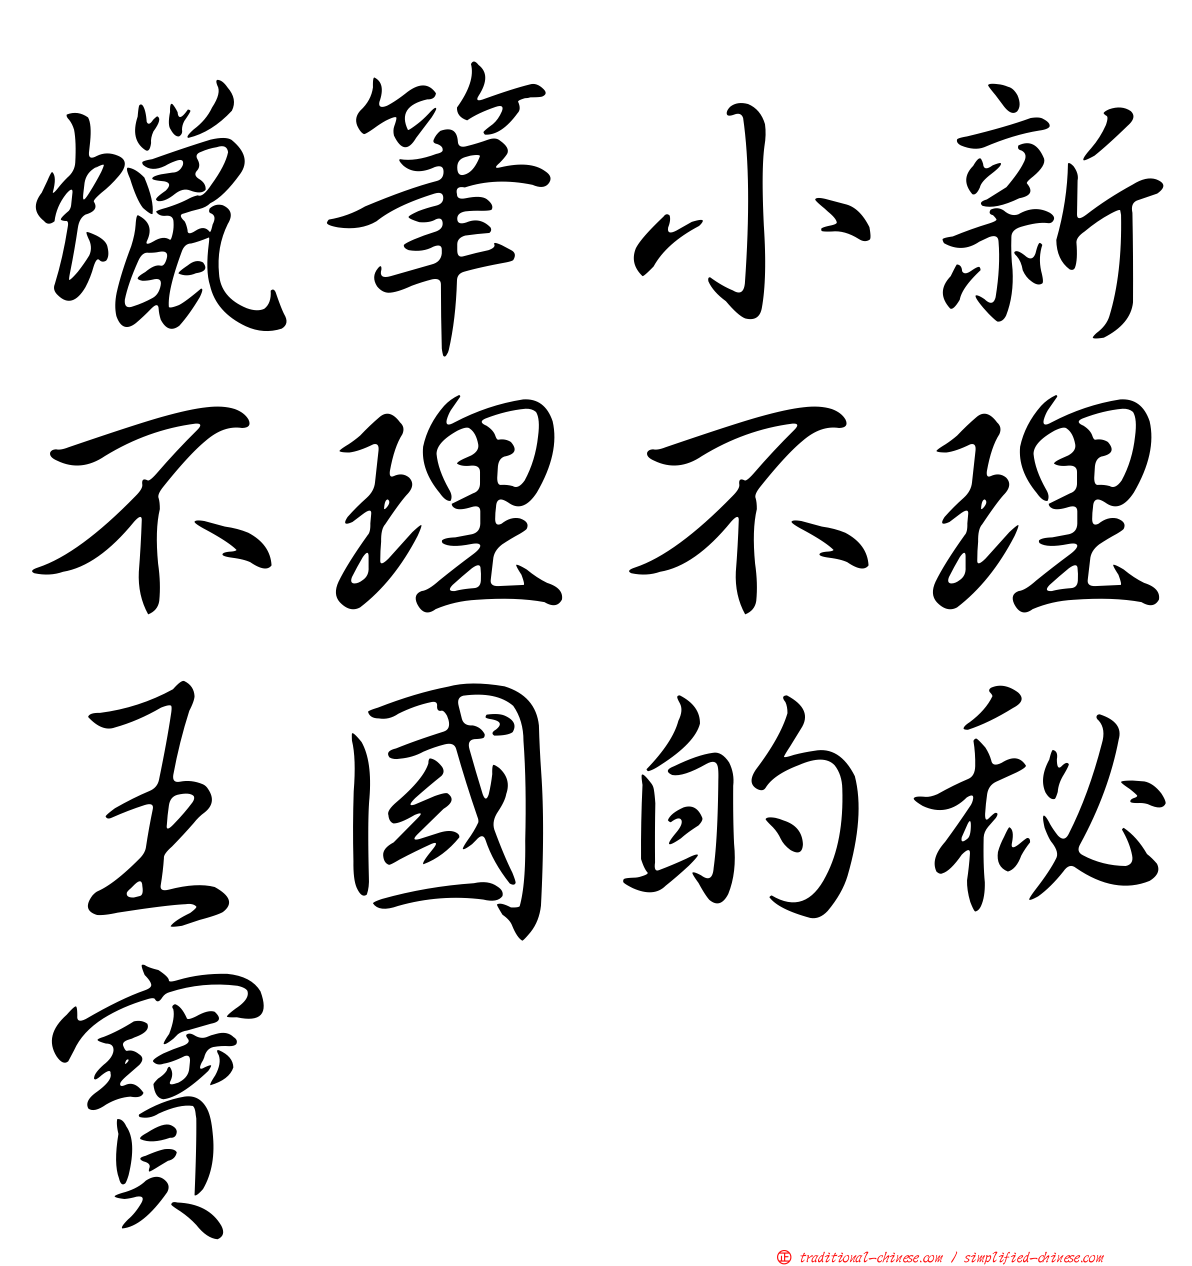 蠟筆小新
不理不理
王國的秘
寶
正 traditional-chinese.com / simplified-chinese.com